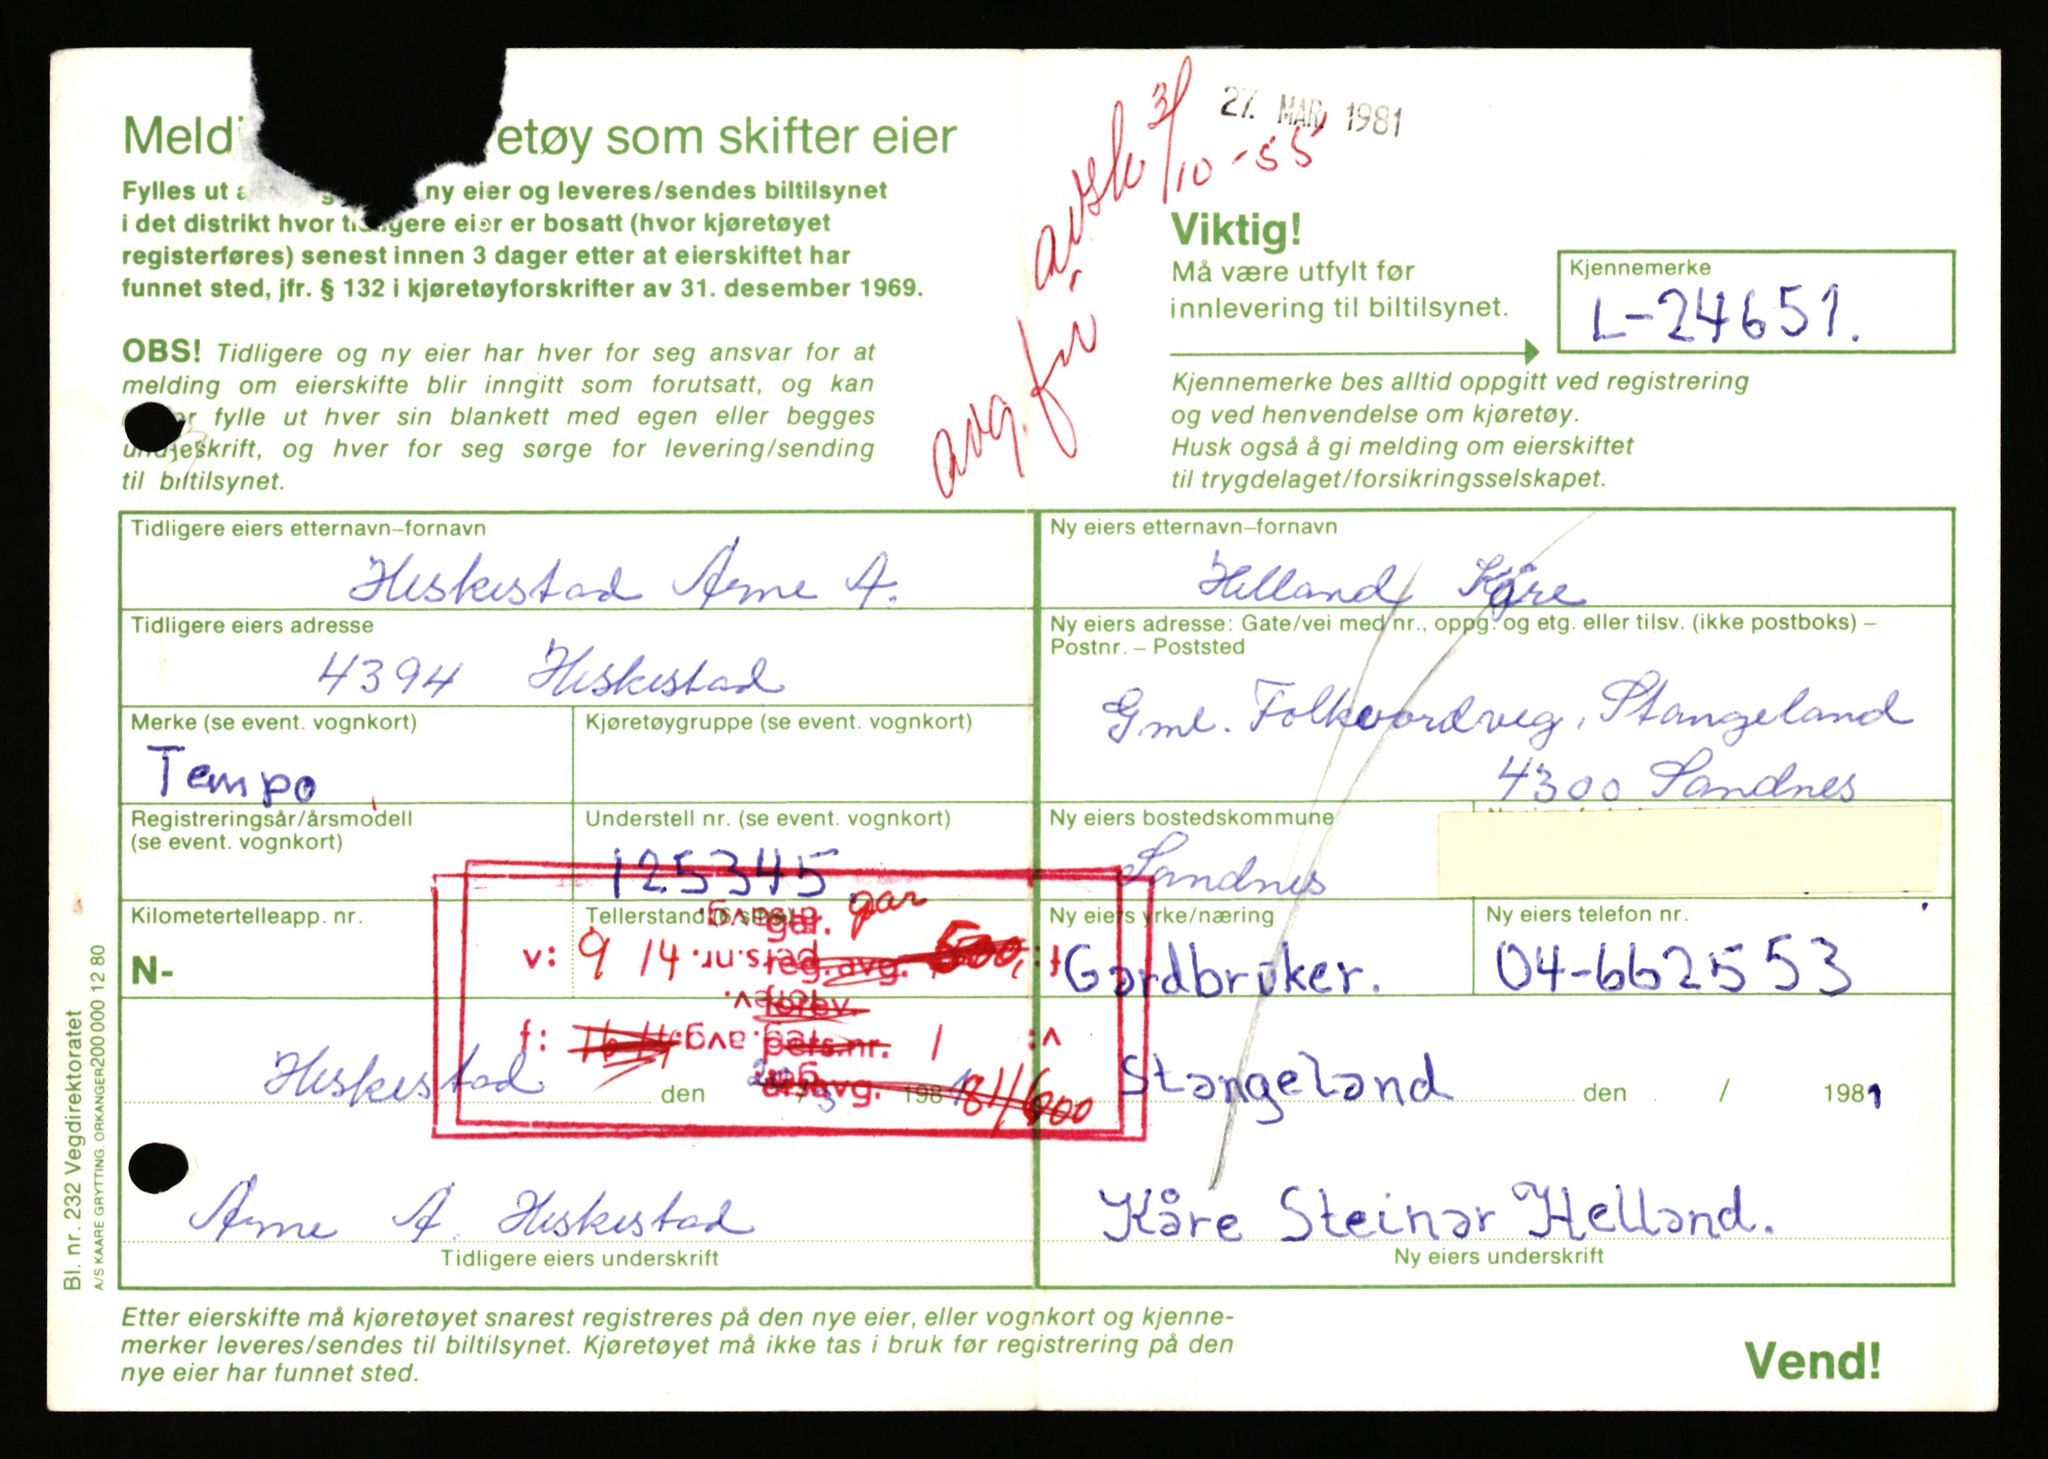 27. MAR. 1981
avsk 3/10-55
avg. fri
etøy som skifter eier
Fylles ut ny eier og leveres/sendes biltilsynet
i det distrikt hvor tidligere eier er bosatt (hvor kjøretøyet
registerføres) senest innen 3 dager etter at eierskiftet har
funnet sted, jfr. § 132 i kjøretøyforskrifter av 31. desember 1969.
OBS! Tidligere og ny eier har hver for seg ansvar for at
melding om eierskifte blir inngitt som forutsatt, og kan
fylle ut hver sin blankett med egen eller begges
underskrift, og hver for seg sørge for levering/sending
til biltilsynet.
Viktig!
Må være utfylt før
innlevering til biltilsynet.
Kjennemerke
L-24651.
Kjennemerke bes alltid oppgitt ved registrering
og ved henvendelse om kjøretøy.
Husk også å gi melding om eierskiftet
til trygdelaget/forsikringsselskapet.
Tidligere eiers etternavn–fornavn
Heskestad Arne A.
Tidligere eiers adresse
4394 Heskestad
Merke (se event. vognkort)
Tempo
Kjøretøygruppe (se event. vognkort)
Registreringsår/årsmodell
(se event. vognkort)
Understell nr. (se event. vognkort)
125345
Kilometertelleapp. nr.
N-
Tellerstand
gar. gar
v: 9/4
reg.avg. 500,
forøv.
f: pers.nr. /
årsavg. 81/600
Heskestad den 3 1981
Arne A. Heskestad
Tidligere eiers underskrift
Ny eiers etternavn–fornavn
Helland Kåre
Ny eiers adresse: Gate/vei med nr., oppg. og etg. eller tilsv. (ikke postboks) –
Postnr. – Poststed
Gml. Folkvordveg, Stangeland
4300 Sandnes
Ny eiers bostedskommune
Sandnes
Ny eiers yrke/næring
Gardbruker.
Ny eiers telefon nr.
04-662553
Stangeland den / 1981
Kåre Steinar Helland.
Ny eiers underskrift
Etter eierskifte må kjøretøyet snarest registreres på den nye eier, eller vognkort og kjenne-
merker leveres/sendes til biltilsynet. Kjøretøyet må ikke tas i bruk før registrering på den
nye eier har funnet sted.
Vend!
Bl. nr. 232 Vegdirektoratet
A/S KAARE GRYTTING. ORKANGER 200 000 12 80